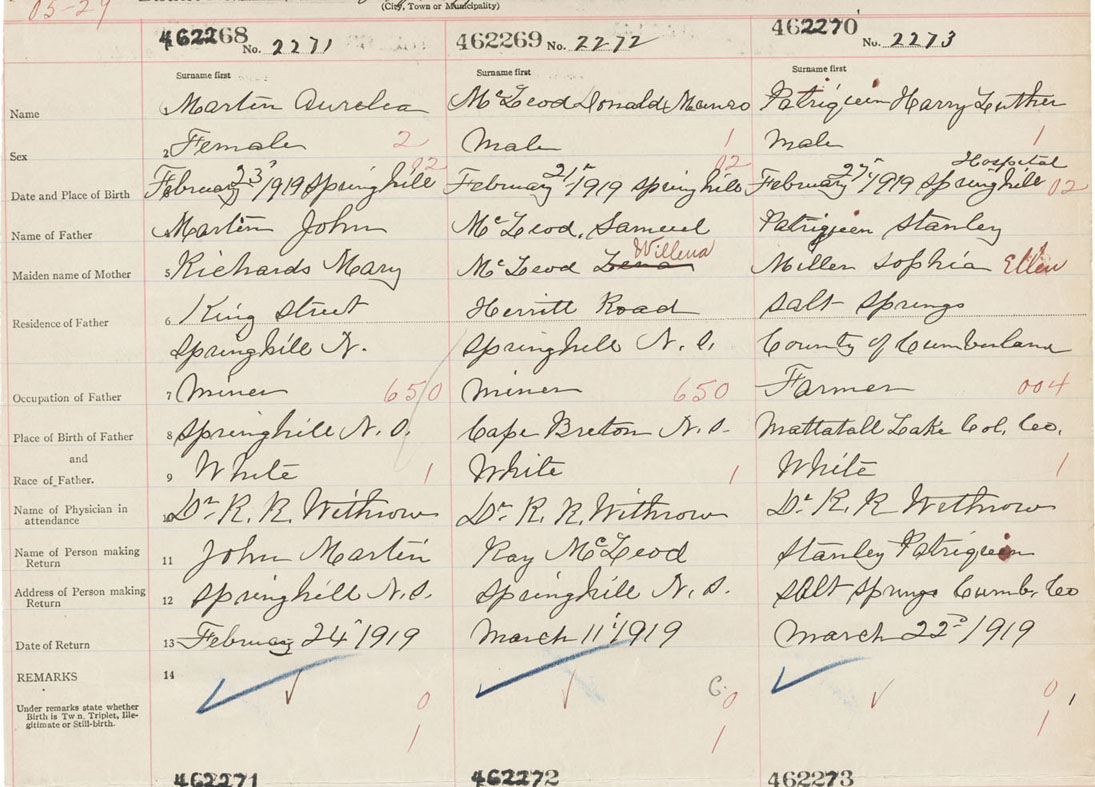 05-24
(City, Town or Municipality)
462268 No. 2271 462269 No. 2272 462270 No. 2273
Surname first Surname first Surname first
Name Martin Aurelia McLeod Donald Munro Patriquin Harry Luther
Sex 2 Female 2 Male 1 Male 1
02 02 Hospital
Date and Place of Birth February 23rd/1919 Springhill February 21st/1919 Springhill February 27th/1919 Springhill 02
Name of Father Martin John McLeod, Samuel Patriquin Stanley
Willena
Maiden name of Mother 5 Richards Mary McLeod Lena Miller Sophia Ellen
Residence of Father 6 King Street Herritt Road Salt Springs
Springhill N. Springhill N. S. County of Cumberland
Occupation of Father 7 Miner 650 Miner 650 Farmer 004
Place of Birth of Father 8 Springhill N. S. Cape Breton N. S. Mattatall Lake Col. Co.
and
Race of Father. 9 White 1 White 1 White 1
Name of Physician in
attendance 10 Dr R. R. Withrow Dr R. R. Withrow Dr R. R. Withrow
Name of Person making
Return 11 John Martin Ray McLeod Stanley Patriquin
Address of Person making
Return 12 Springhill N. S. Springhill N. S. Salt Springs Cumb. Co
Date of Return 13 February 24th 1919 March 11th/1919 March 22nd/1919
REMARKS 14
Under remarks state whether
Birth is Twin, Triplet, Ille-
gitimate or Still-birth.
0 C. 0 0
1 1 1
462271 462272 462273